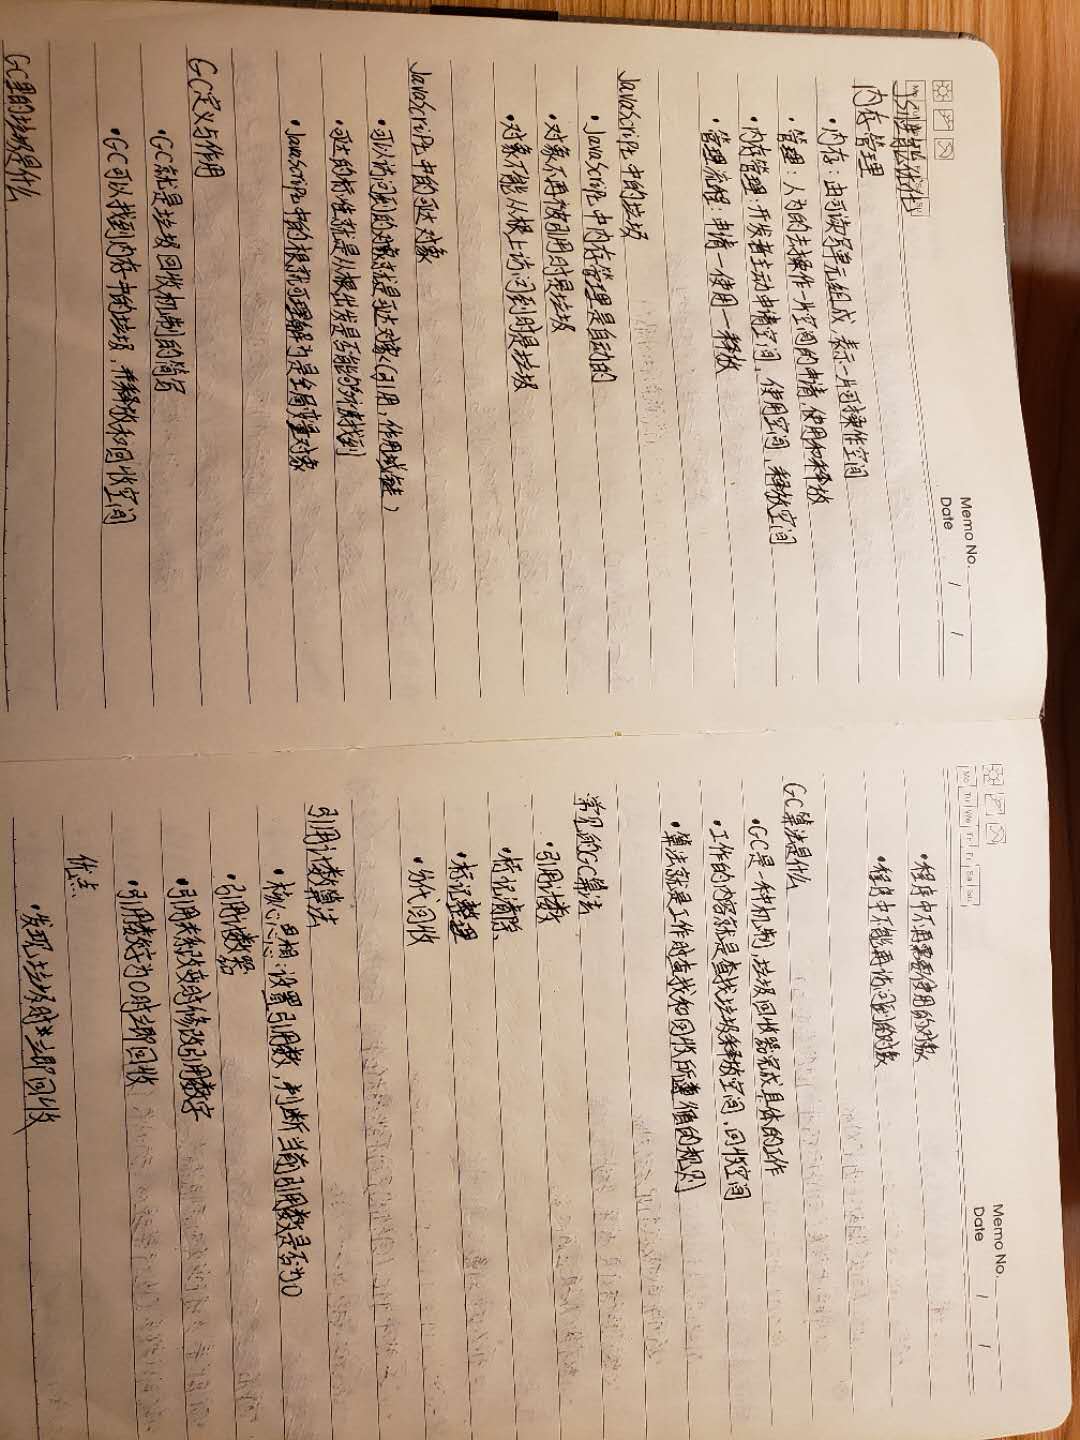 Memo No.
Date / /
JS性能优化
内存管理
·内存：由可读写单元组成，表示一片可操作空间
·管理：人为的去操作一片空间的申请、使用和释放
·内存管理：开发者主动申请空间、使用空间、释放空间
·管理流程：申请—使用—释放
JavaScript中的垃圾
·JavaScript中内存管理是自动的
·对象不再被引用时是垃圾
·对象不能从根上访问到时是垃圾
JavaScript中的可达对象
·可以访问到的对象就是可达对象（引用，作用域链）
·可达的标准就是从根出发是否能够被找到
·JavaScript中的根就可理解为是全局变量对象
GC定义与作用
·GC就是垃圾回收机制的简写
·GC可以找到内存中的垃圾，并释放和回收空间
GC里的垃圾是什么
Memo No.
Date / /
Mo Tu We Th Fr Sa Su
·程序中不再需要使用的对象
·程序中不能再访问到的对象
GC算法是什么
·GC是一种机制，垃圾回收器完成具体的工作
·工作的内容就是查找垃圾释放空间、回收空间
·算法就是工作时查找和回收所遵循的规则
常见的GC算法
·引用计数
·标记清除、
·标记整理
·分代回收
引用计数算法
·核心思想：设置引用数，判断当前引用数是否为0
·引用计数器
·引用关系改变时修改引用数字
·引用数字为0时立即回收
优点
·发现垃圾时立即回收